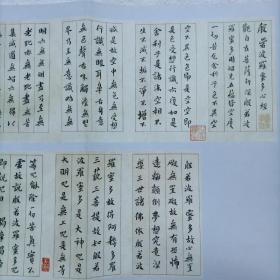 般若波羅蜜多心經
觀自在菩薩行深般若波
羅蜜多時照見五蘊皆空度
一切苦厄舍利子色不異空
空不異色色即是空空即
是色受想行識亦復如是
舍利子是諸法空相不
生不滅不垢不淨不增
減是故空中無色無受想
行識無眼耳鼻舌身意
無色聲香味觸法無眼
界乃至無意識界無無
明亦無無明盡乃至無
老死亦無老死盡無苦
集滅道無智亦無得以
般若波羅蜜多故心無罣
礙無罣礙故無有恐怖
遠離顛倒夢想究竟涅
槃三世諸佛依般若波
羅蜜多故得阿耨多羅
三藐三菩提故知般若
波羅蜜多是大神咒是
大明咒是無上咒是無
等咒能除一切苦真實不
即說咒曰揭諦